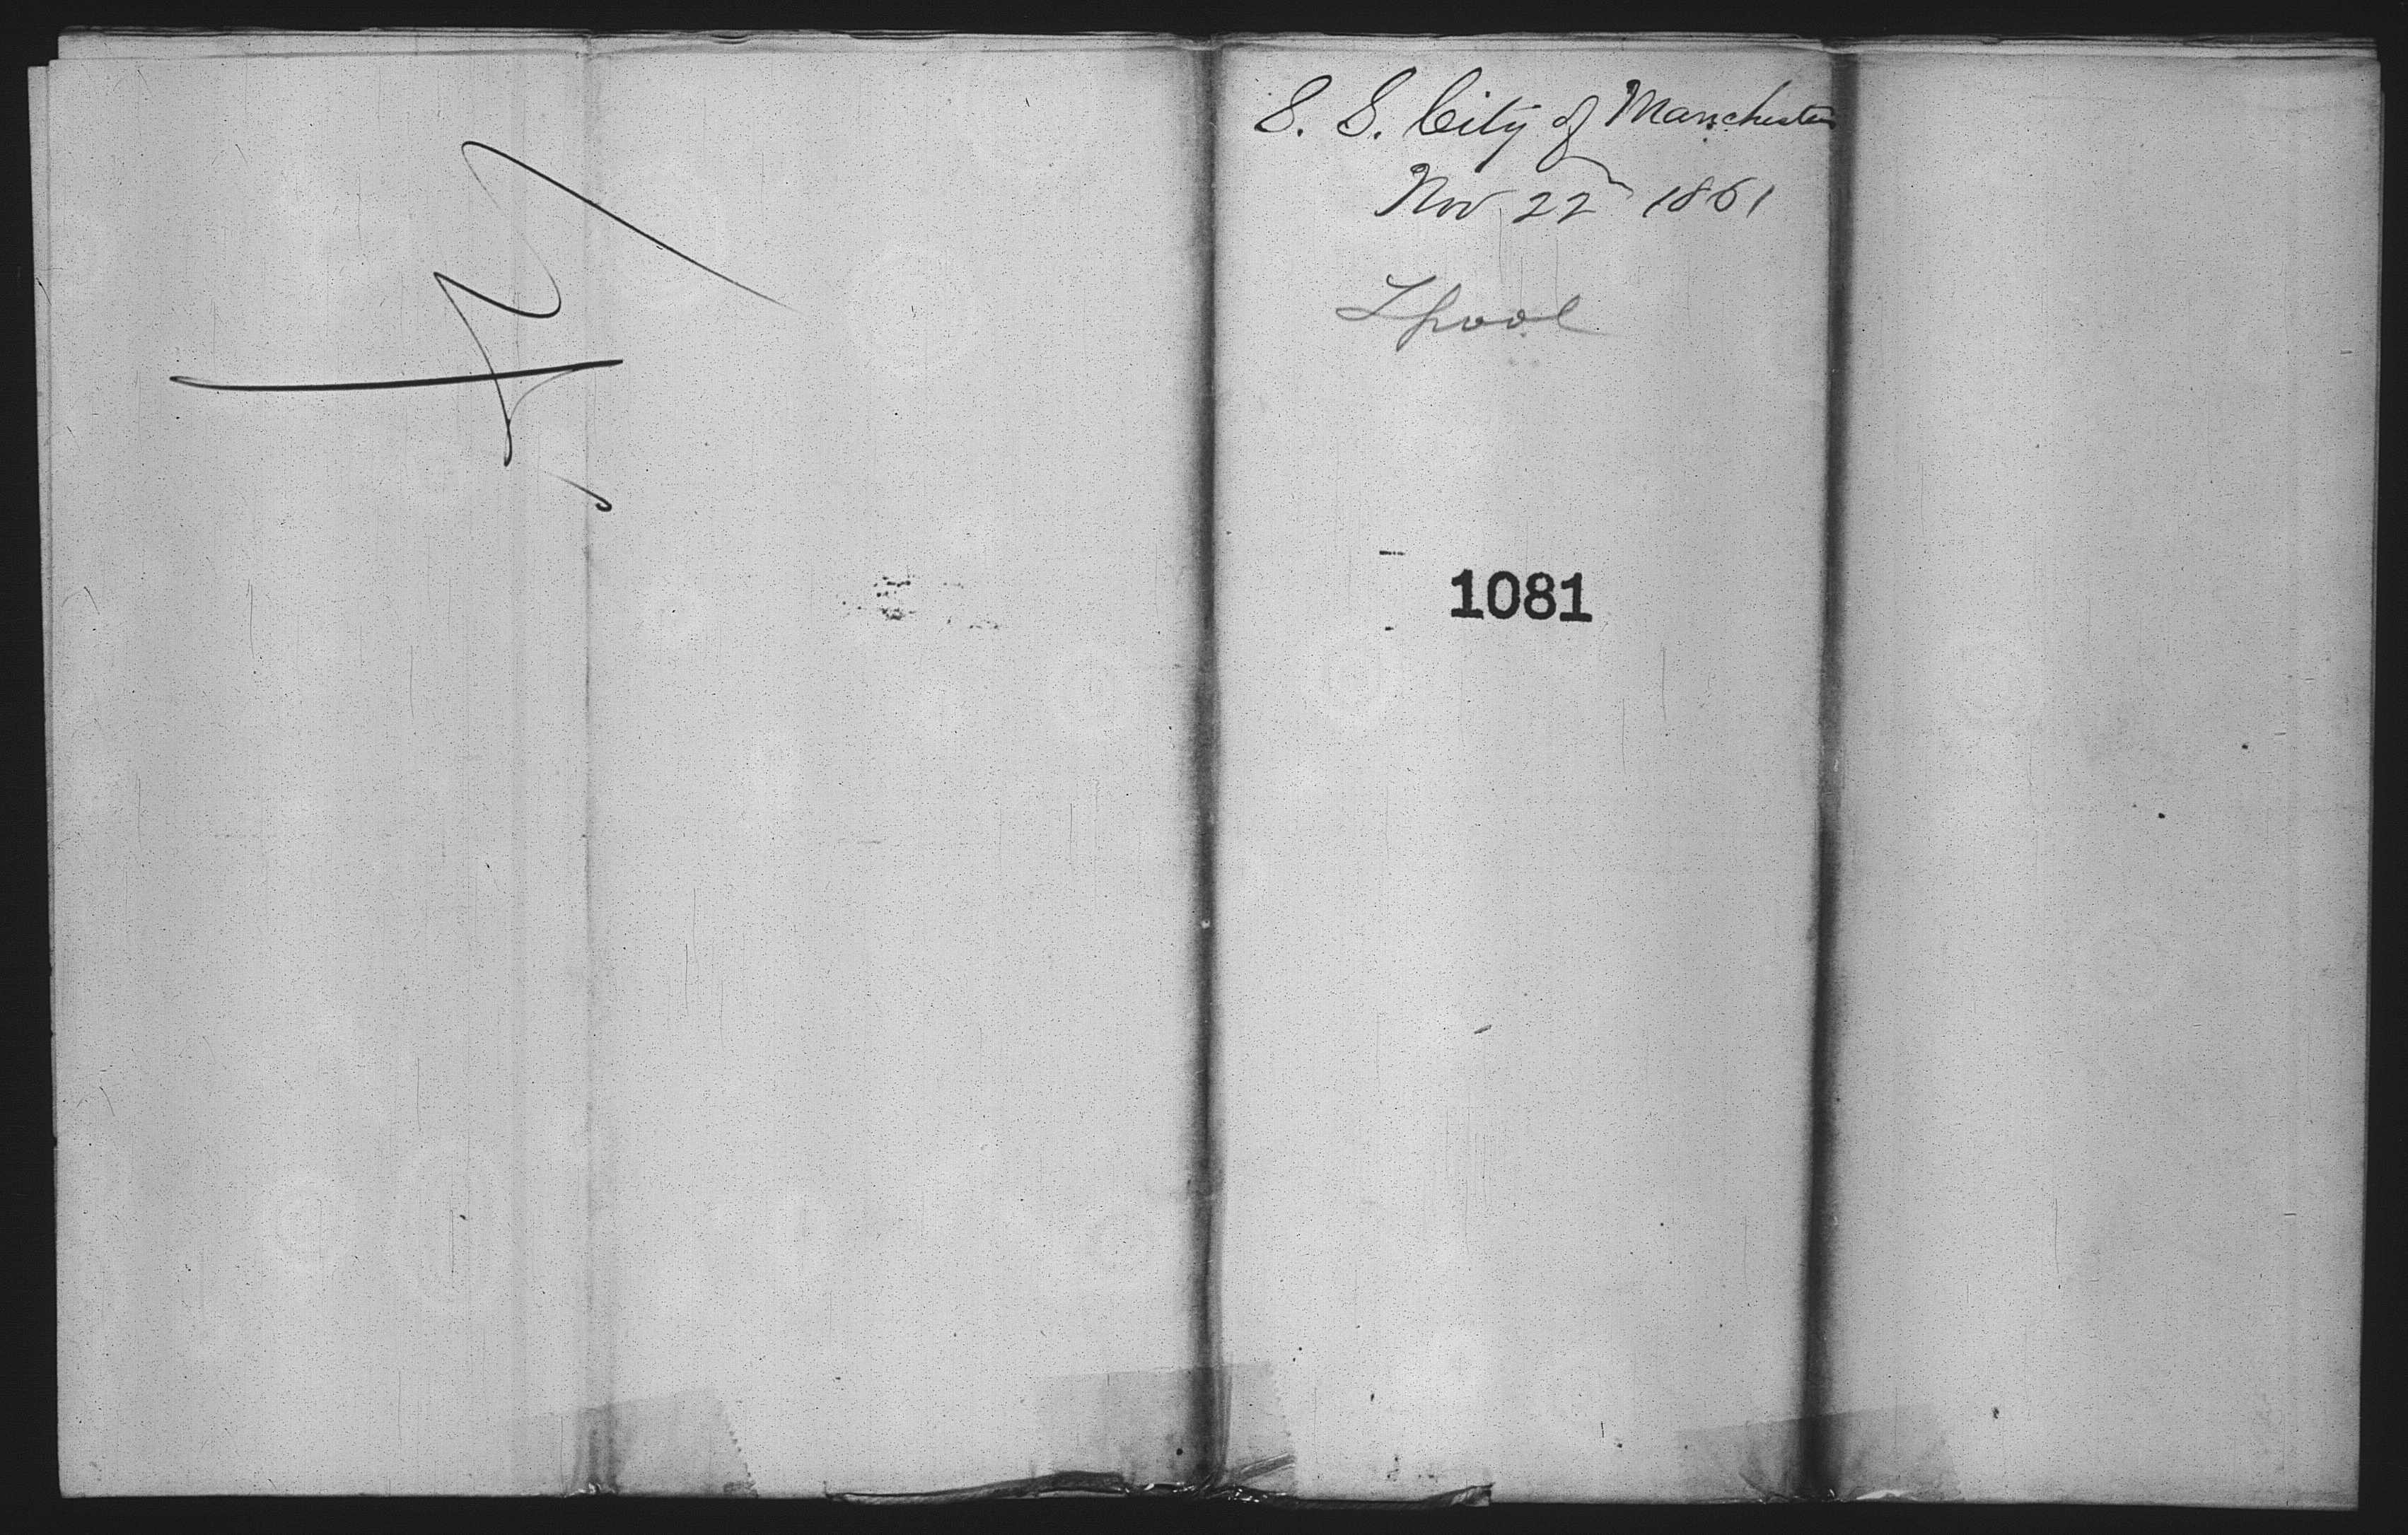 S. S. City of Manchester
Nov 22 1861
Lpool
1081